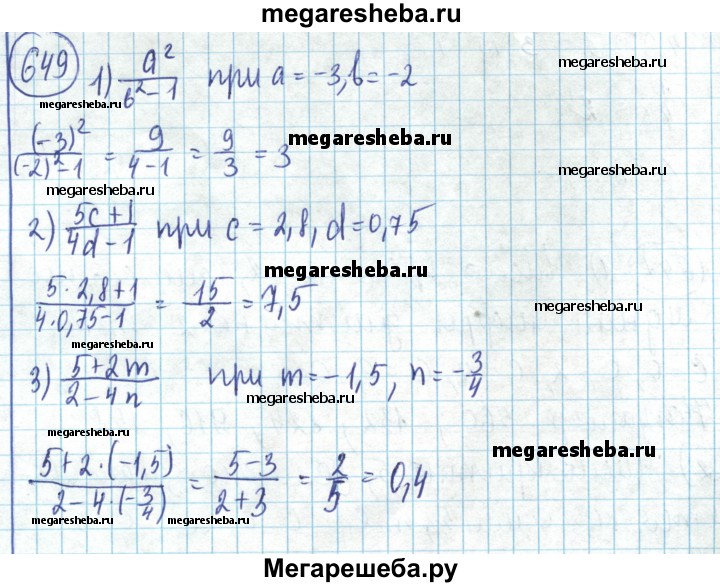 megaresheba.ru
649 1) a²/(b²-1) при a = -3, b = -2
megaresheba.ru
megaresheba.ru megaresheba.ru
(-3)²/((-2)²-1) = 9/(4-1) = 9/3 = 3
megaresheba.ru
megaresheba.ru
megaresheba.ru
2) (5c+1)/(4d-1) при c = 2,8, d = 0,75
megaresheba.ru
(5·2,8+1)/(4·0,75-1) = 15/2 = 7,5
megaresheba.ru
megaresheba.ru
3) (5+2m)/(2-4n) при m = -1,5, n = -3/4
megaresheba.ru
megaresheba.ru
megaresheba.ru
(5+2·(-1,5))/(2-4·(-3/4)) = (5-3)/(2+3) = 2/5 = 0,4
megaresheba.ru megaresheba.ru
Мегарешеба.ру